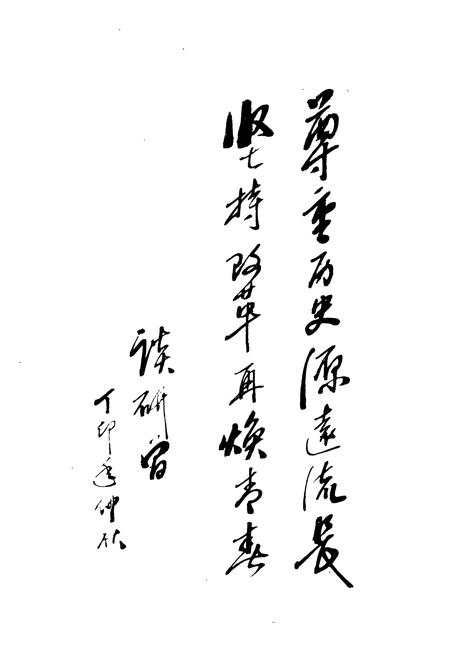 尊重历史源远流长
坚持改革再焕青春
谈研曾
丁卯季仲秋